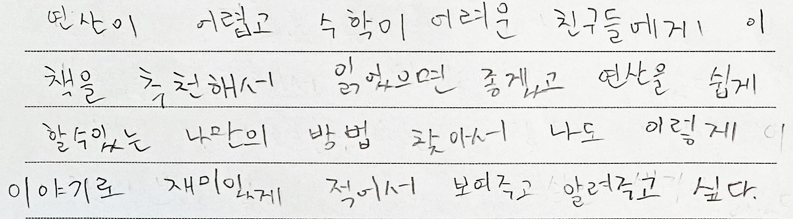 연산이 어렵고 수학이 어려운 친구들에게 이
책을 추천해서 읽었으면 좋겠고 연산을 쉽게
할수있는 나만의 방법 찾아서 나도 이렇게
이야기로 재미있게 적어서 보여주고 알려주고 싶다.